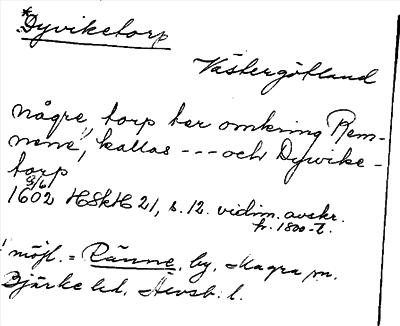 *Dyviketorp
Västergötland
någre torp ther omkring Rem-
nene, kallas --- och Dywike-
torp
9/6
1602 HSkH 21, s. 12. vidim. avskr.
fr. 1800-t.
! möjl. = Ränne, by, Magra sn,
Bjärke hd, Älvsb. l.